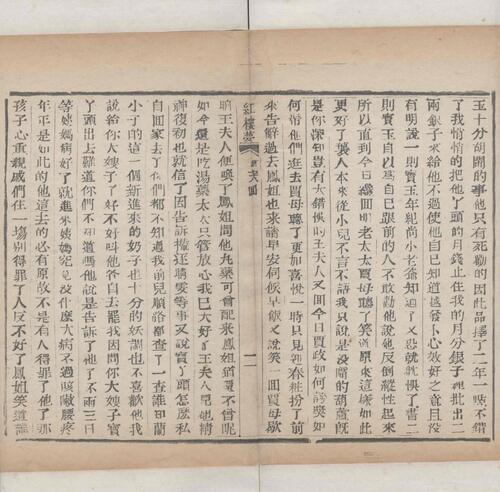 玉十分胡鬧的事他只有死勸的因此品擇了二年一點不錯
了我悄悄的把他丫頭的月錢止住我的月分銀子裡批出二
兩銀子來給他不過使他自己知道越發小心效好之意且没
有明說一則寳玉年紀尚小老爺知道了又恐說躭悞了書二
則寳玉自以爲自己跟前的人不敢勸他說他反倒縱性起來
所以直到今日纔回明老太太賈母聽了笑道原來這樣如此
更好了襲人本來從小兒不言不語我只說是没嘴的葫蘆旣
是你深知豈有大錯悞的王夫人又回今日賈政如何誇奬如
何帶他們逛去賈母聽了更加喜悅一時只見迎春粧扮了前
來告辭過去鳳姐也來請早安伺候早飯又說笑一回賈母歇
紅樓夢
夫回
二
晌王夫人便喚了鳳姐問他丸藥可曾配來鳳姐道還不曾呢
如今還是吃湯藥太太只管放心我已大好了王夫人見他精
神復初也就信了因告訴攆逐晴雯等事又說寳丫頭怎麽私
自回家去了你們都不知道我前兒順路都查了一查誰知蘭
小子的這一個新進來的奶子也十分的妖調也不喜歡他我
說給你大嫂子了好不好叫他各自去罷我因問你大嫂子寳
丫頭出去難道你們不知道嗎他說是告訴了他了不兩三日
等姨媽病好了就進來姨媽究竟没什麽大病不過咳嗽腰疼
年年是如此的他這去的必有原故不是有人得罪了他了那
孩子心重親戚們住一塲別得罪了人反不好了鳳姐笑道誰